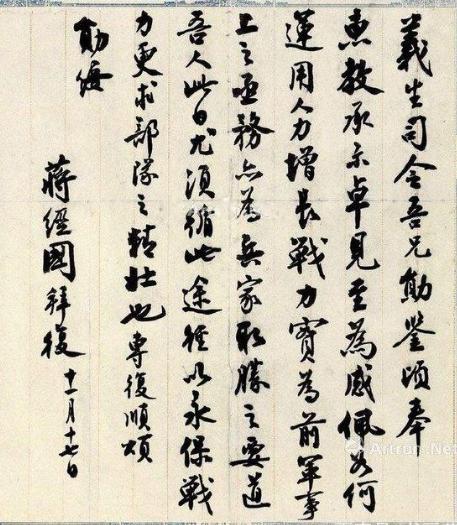 義生司令吾兄勛鑒頃奉
惠教承示卓見至為感佩如何
運用人力增長戰力實為前軍事
上之亟務亦為兵家取勝之要道
吾人此日尤須循此途徑以永保戰
力更求部隊之精壯也專復順頌
勛綏
蔣經國拜復 十一月十七日
Artron.Net